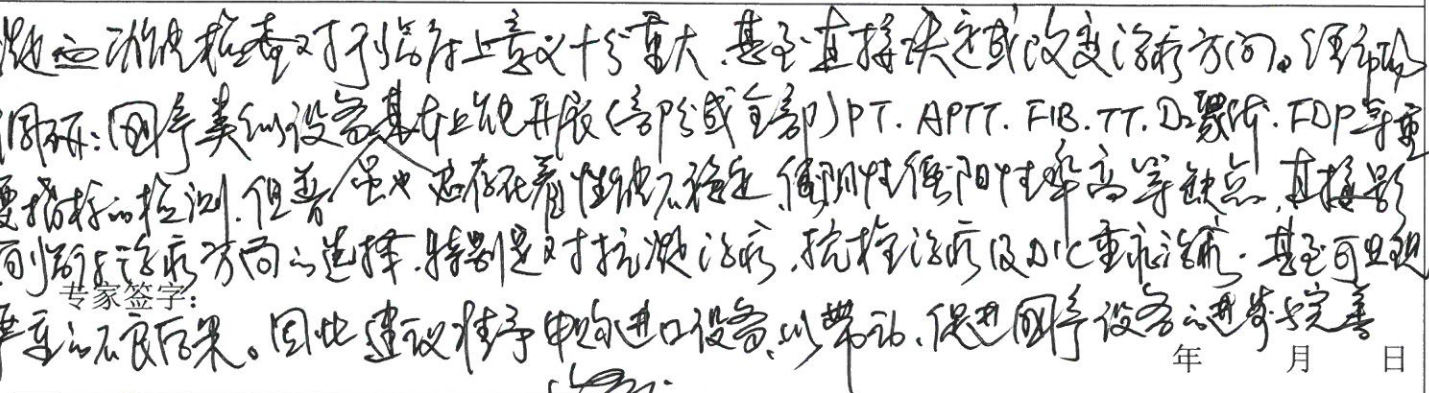 凝血功能检查对于临床上意义十分重大,甚至直接决定或改变治疗方向。经市场
调研:国产类似设备基本上能开展(部分或全部)PT. APTT. FIB. TT. D-二聚体. FDP等重
要指标的检测.但普遍也存在着性能不稳定,假阴性假阳性率高等缺点,直接影
响临床诊疗方向的选择.特别是对抗凝治疗.抗栓治疗及DIC重症治疗.甚至可出现
专家签字:
严重的不良后果。因此建议准予申购进口设备,以带动,促进国产设备的进步与完善
年 月 日